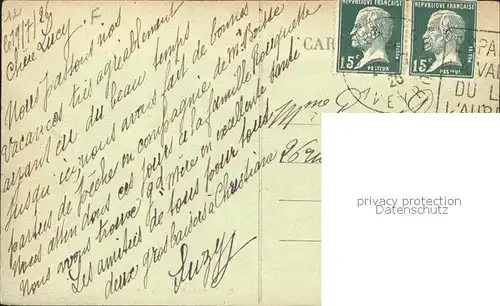 le 19/7/26
Chère Lucy
Nous passons nos
vacances très agréablement
ayant eu du beau temps
jusqu'ici, nous avons fait de bonnes
parties de pêche en compagnie de Mr
Nous attendons ces jours-ci la famille
Nous vous trouve gd mère en excellente santé
Les amitiés de tous pour tous
deux gros baisers à Christiane
Suzy
REPUBLIQUE FRANÇAISE
15c
POSTES
PASTEUR
REPUBLIQUE FRANÇAISE
15c
POSTES
PASTEUR
CAR
Mme
26
AVEYR
PA
VA
DU L
L'AUB
privacy protection
Datenschutz